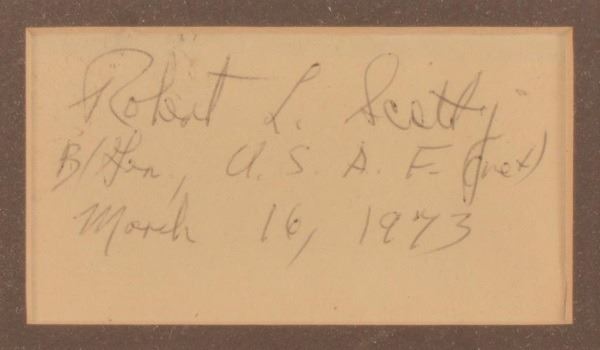 Robert L. Scott, Jr
B/Gen., U. S. A. F. (ret)
March 16, 1973